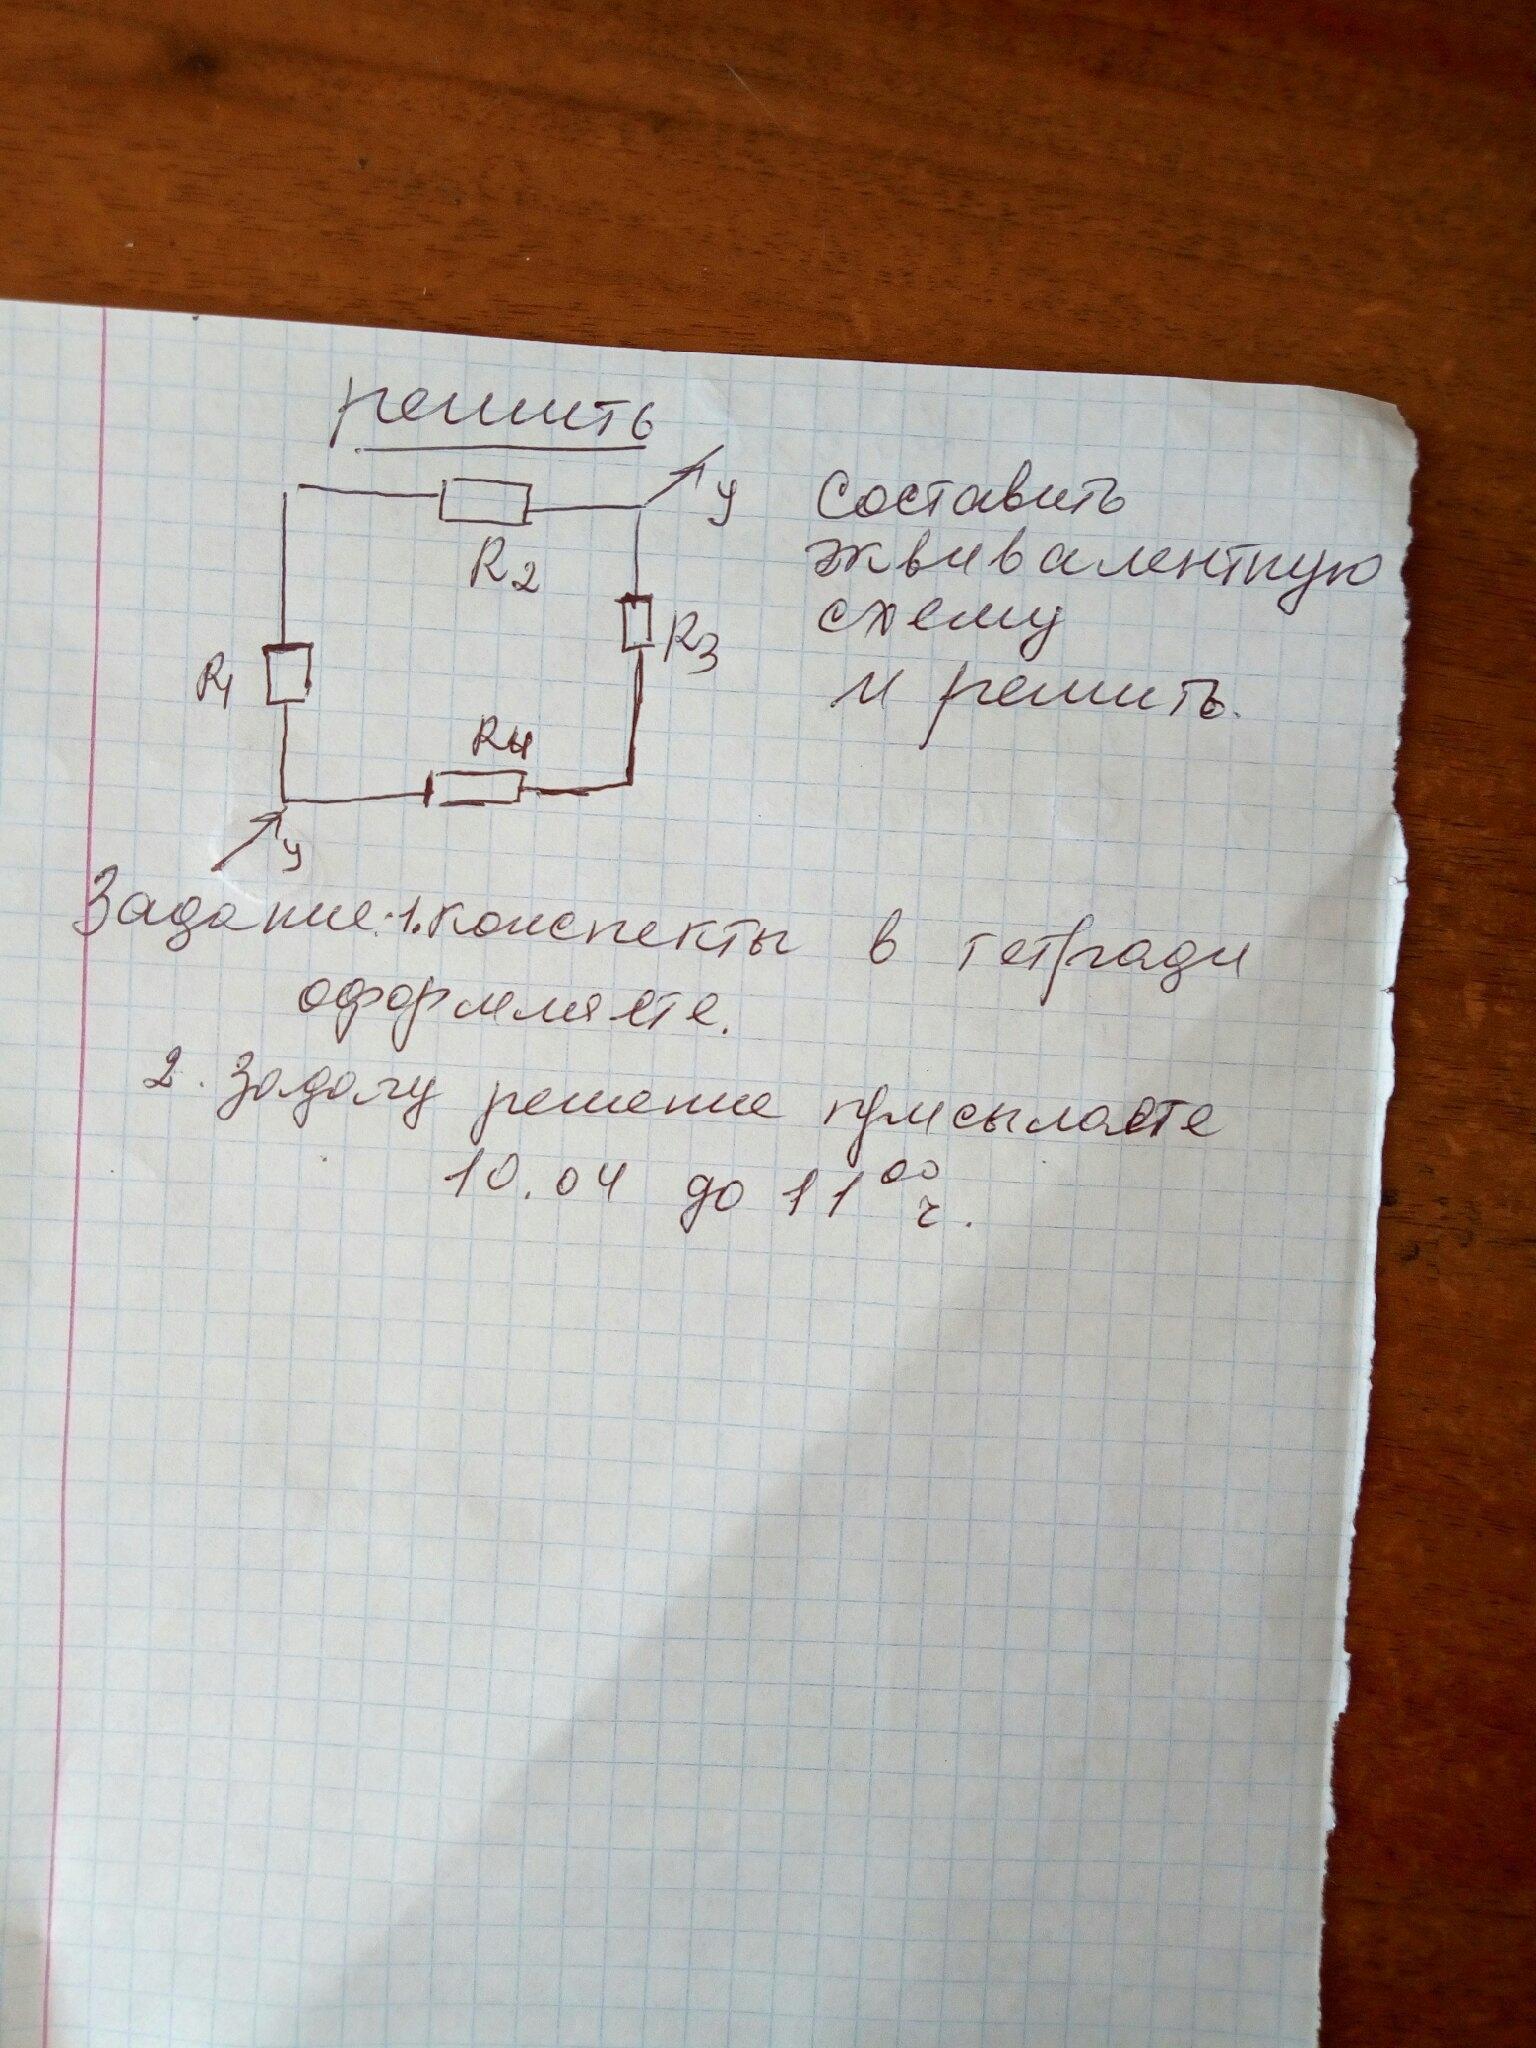 решить
У
R2
R3
R1
R4
У
Составить
эквивалентную
схему
и решить.
Задание: 1. конспекты в тетради
оформляете.
2. Задачу решение присылаете
10.04 до 11 00 ч.